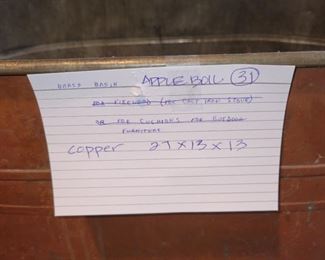 BRASS BASIN APPLE BOIL 31
FOR FIREWOOD (FOR CAST IRON STOVE)
OR FOR CUSHIONS FOR OUTDOOR
FURNITURE
copper 27 x 13 x 13